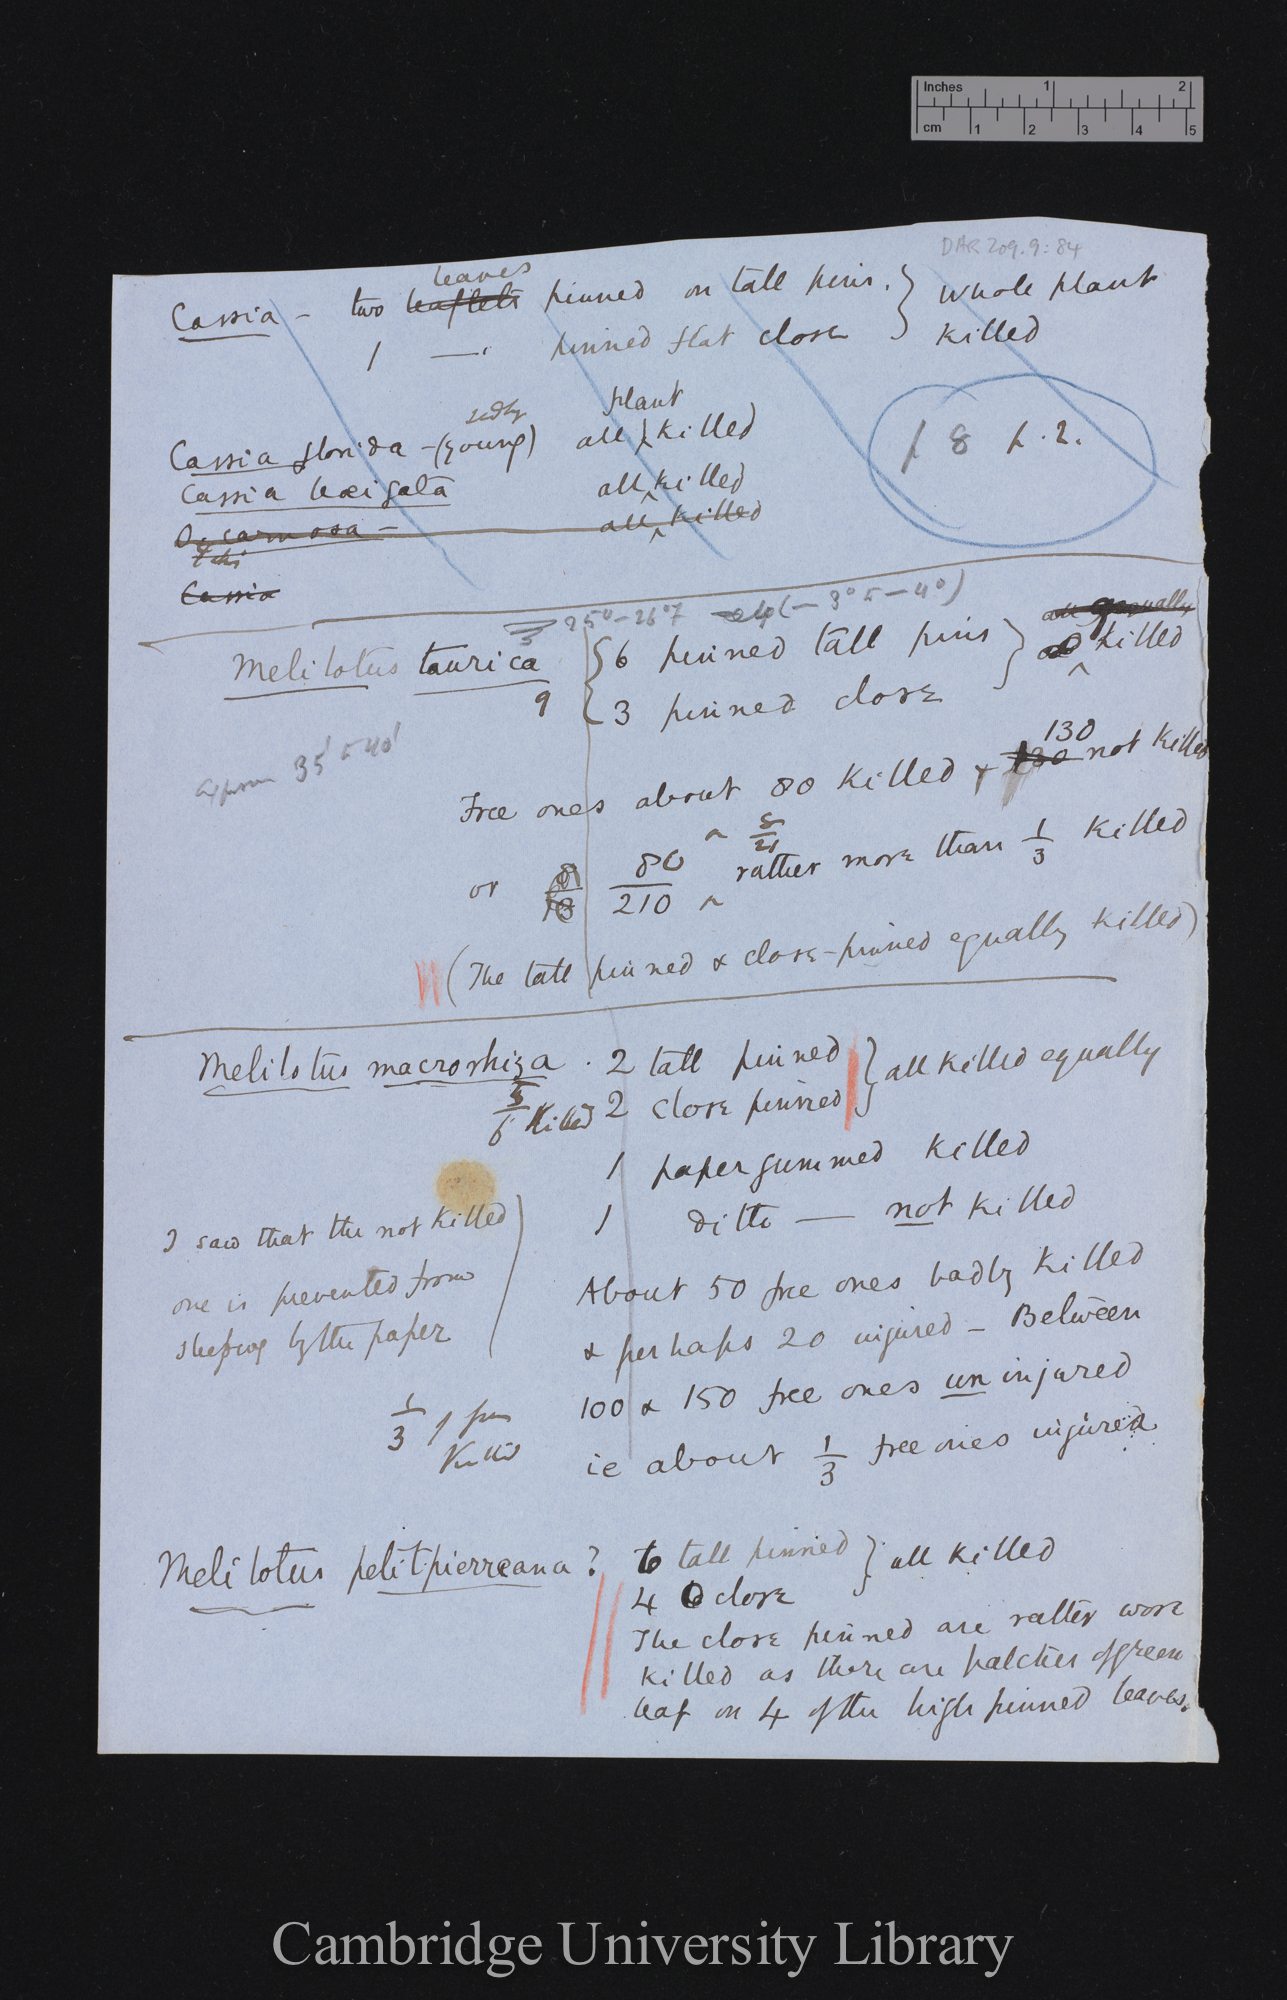 Inches 1 2
cm 1 2 3 4 5
DAR 209.9:84
leaves
Cassia – two leaflets pinned on tall pins. } whole plant
1 — " pinned flat close killed
sedlg plant
Cassia florida – (young) all killed
Cassia laevigata all killed
O. carnosa – all killed
Cassia
p 8 p. 2.
25° – 26°7 (– 3°5 – 4°)
all equally
Melilotus taurica { 6 pinned tall pins } killed
9 { 3 pinned close
35' 40'
130
Free ones about 80 killed & 130 not killed
8/21
or 8/13 80/210 rather more than 1/3 killed
(The tall pinned & close-pinned equally killed)
Melilotus macrorhiza . 2 tall pinned } all killed equally
5/6 killed 2 close pinned
1 paper gummed killed
1 ditto — not killed
I saw that the not killed
one is prevented from
sleeping by the paper
About 50 free ones badly killed
& perhaps 20 injured – Between
100 & 150 free ones uninjured
1/3 of free
killed
ie about 1/3 free ones injured
Melilotus petitpierreana ? 6 tall pinned } all killed
4 close
The close pinned are rather worse
killed as there are patches of green
leaf on 4 of the high pinned leaves.
Cambridge University Library